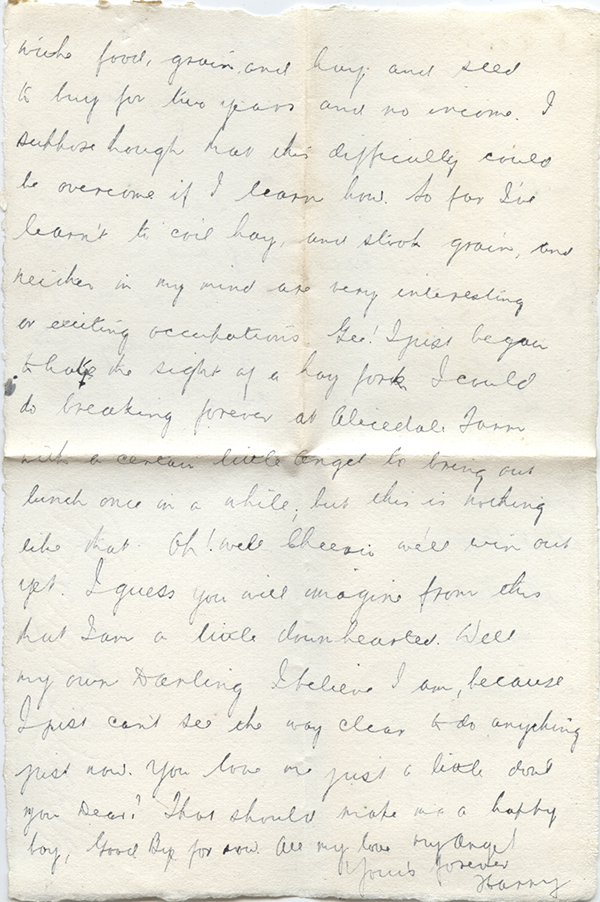 food, grain, and hay and seed
to buy for two years and no income. I
suppose though that this difficully could
be overcome if I learn how. So far I've
learn't to coil hay, and stook grain, and
neither in my mind are very interesting
or exciting occupations. Gee! I just began
to hate the sight of a hay fork. I could
do breaking forever at Alicedale Farm
with a certain little angel to bring out
lunch once in a while, but this is nothing
like that. Oh! well Cheerio we'll win out
yet. I guess you will imagine from this
that I am a little downhearted. Well
my own Darling I believe I am, because
I just can't see the way clear to do anything
just now. You love me just a little dont
you Dear? That should make me a happy
boy, Good Bye for now. All my love my Angel
Yours forever
Harry